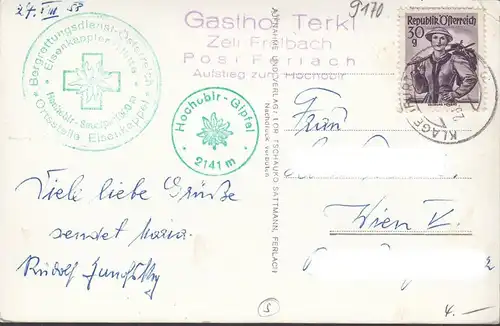 27. VIII 58
Gasthof Terkl
Zell Freibach
Post Ferlach
Aufstieg zum Hochobir
9170
Republik Österreich
30
g
KLAGENFURT
Bergrettungsdienst-Österreich
Eisenkappler Hütte
Hochobir-Seehöhe
Ortsstelle Eisenkappel
Hochobir-Gipfel
2141 m
AUFNAHME UND VERLAG: LOR TSCHAUKO SATTMANN, FERLACH
Nachdruck verboten
Frau
Wien V.
Viele liebe Grüße
sendet Maria.
Rudolf
5
4.-